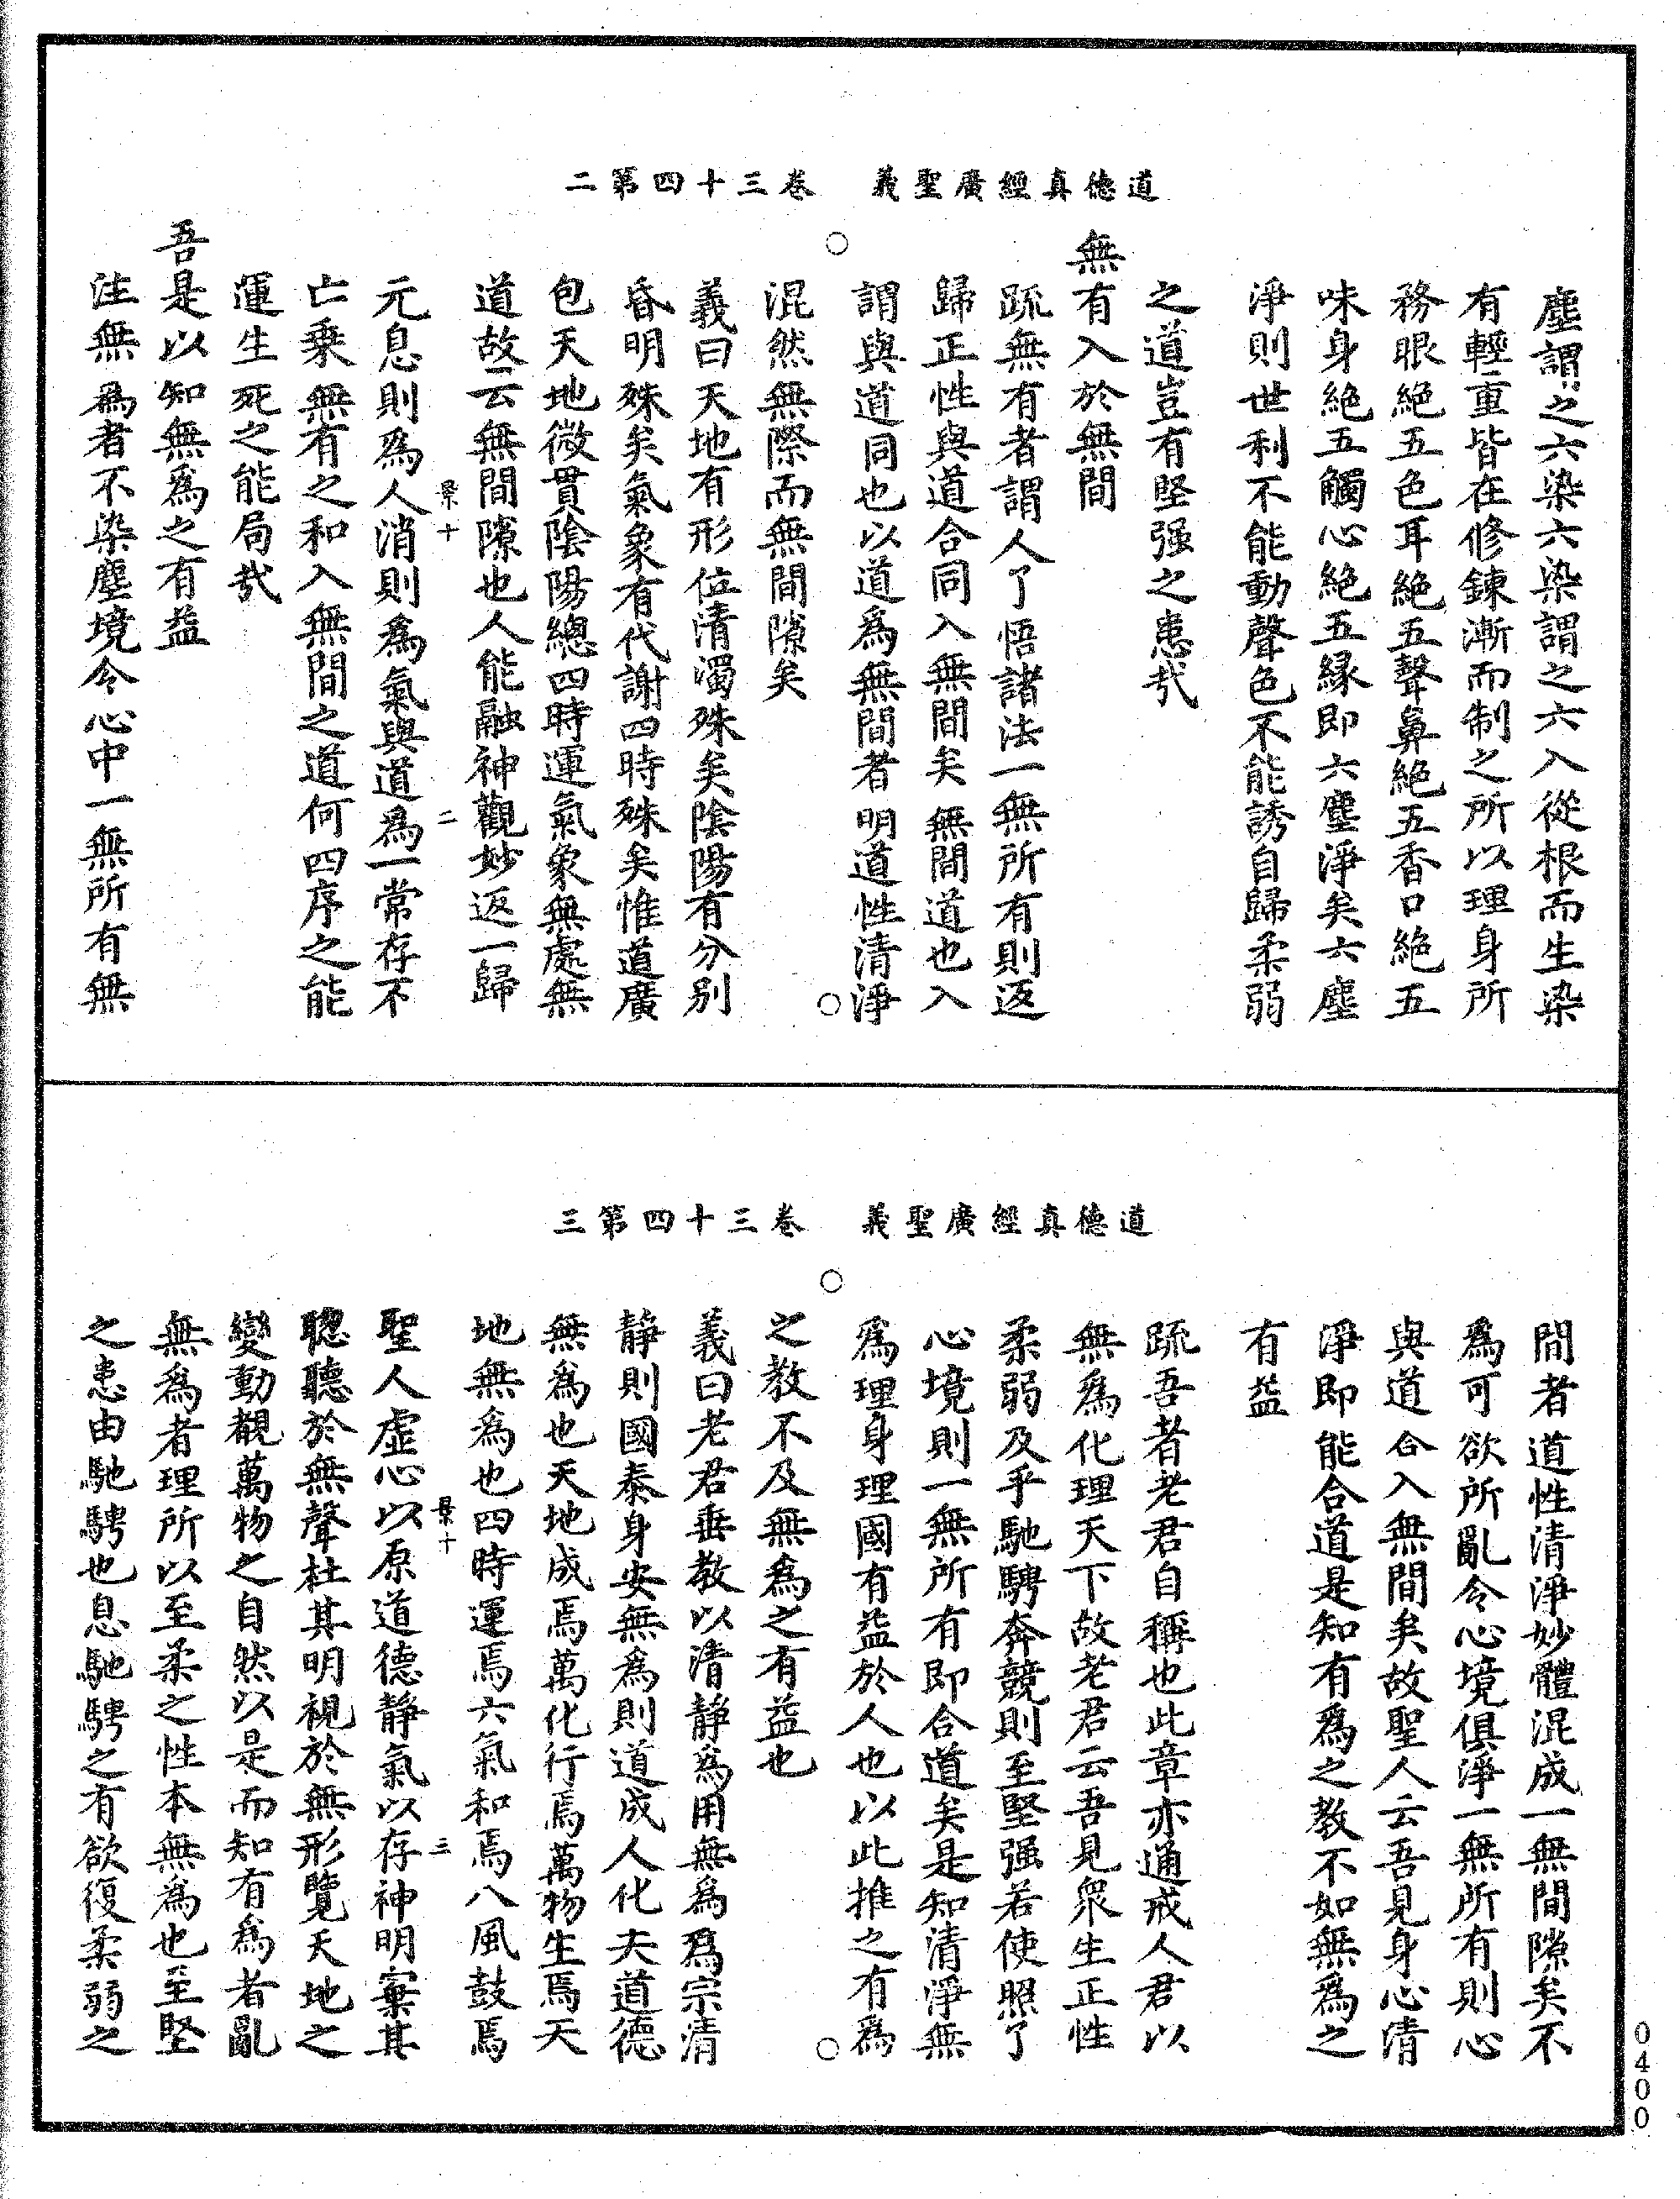 道德真經廣聖義　卷三十四第二
塵謂之六染六染謂之六入從根而生染
有輕重皆在修鍊漸而制之所以理身所
務眼絶五色耳絶五聲鼻絶五香口絶五
味身絶五觸心絶五緣即六塵淨矣六塵
淨則世利不能動聲色不能誘自歸柔弱
之道豈有堅强之患㢤
無有入於無間
䟽無有者謂人了悟諸法一無所有則返
歸正性與道合同入無間矣無間道也入
謂與道同也以道爲無間者明道性清淨
混然無際而無間隙矣
義曰天地有形位清濁殊矣陰陽有分别
昏明殊矣氣象有代謝四時殊矣惟道廣
包天地微貫陰陽總四時運氣象無處無
道故云無間隙也人能融神觀妙返一歸
景十　二
元息則爲人消則爲氣與道爲一常存不
亡乗無有之和入無間之道何四序之能
運生死之能局㢤
吾是以知無爲之有益
注無爲者不染塵境令心中一無所有無
道德真經廣聖義　卷三十四第三
間者道性清淨妙體混成一無間隙矣不
爲可欲所亂令心境俱淨一無所有則心
與道合入無間矣故聖人云吾見身心清
淨即能合道是知有爲之教不如無爲之
有益
䟽吾者老君自稱也此章亦通戒人君以
無爲化理天下故老君云吾見衆生正性
柔弱及乎馳騁奔競則至堅强若使照了
心境則一無所有即合道矣是知清淨無
爲理身理國有益於人也以此推之有爲
之教不及無爲之有益也
義曰老君垂教以清静爲用無爲爲宗清
静則國泰身安無爲則道成人化夫道德
無爲也天地成焉萬化行焉萬物生焉天
地無爲也四時運焉六氣和焉八風鼓焉
景十　三
聖人虛心以原道德静氣以存神明棄其
聰聽於無聲杜其明視於無形覽天地之
變動觀萬物之自然以是而知有爲者亂
無爲者理所以至柔之性本無爲也至堅
之患由馳騁也息馳騁之有欲復柔弱之
0400